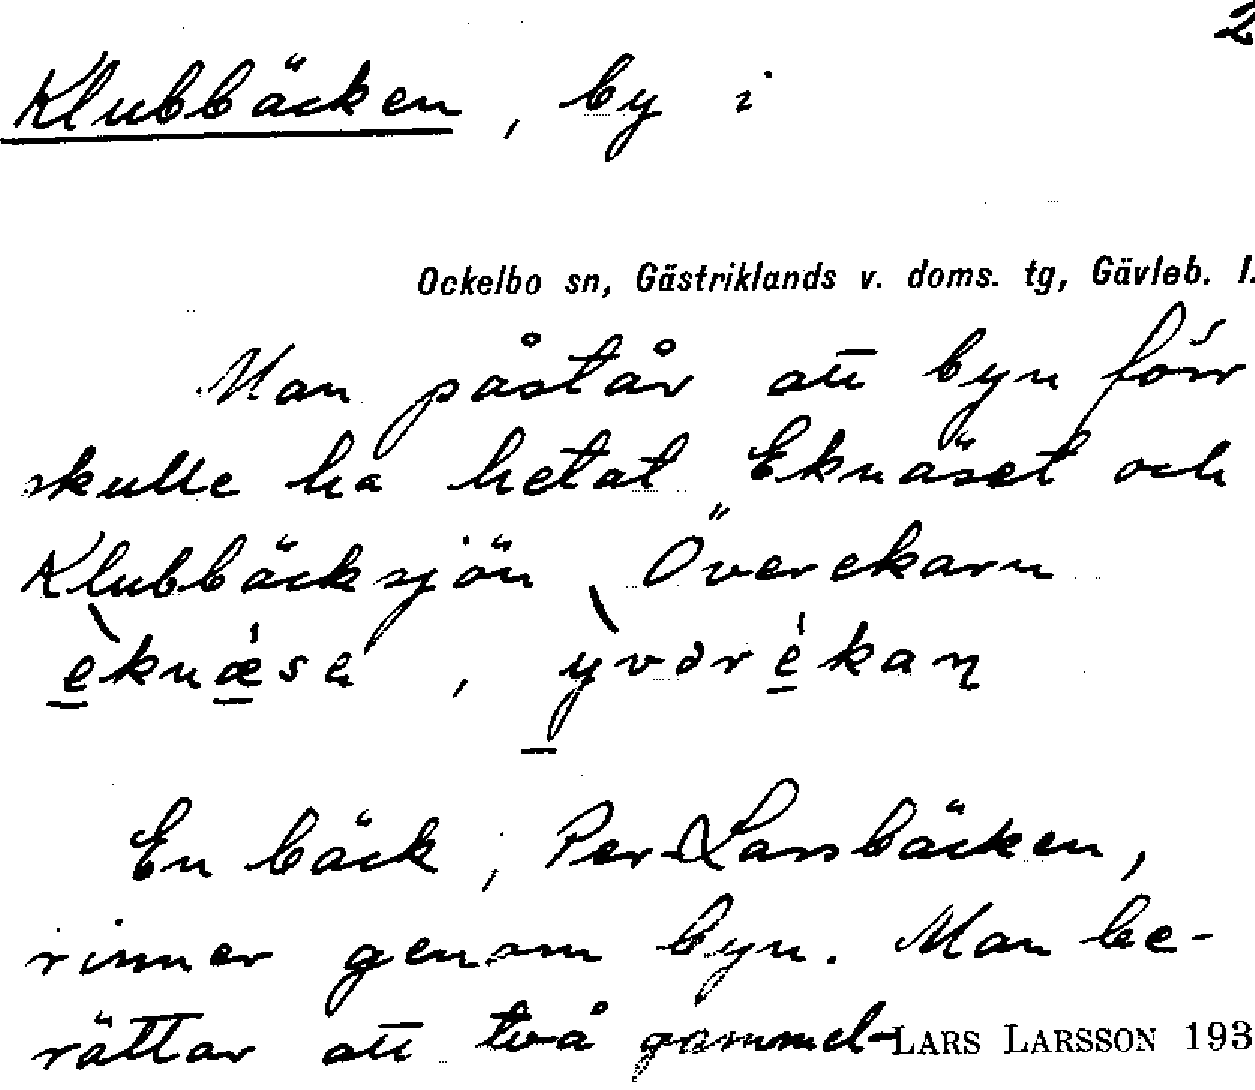 2
Klubbäcken, by i
Ockelbo sn, Gästriklands v. doms. tg, Gävleb. l.
Man påstår att byn förr
skulle ha hetat Eknäset och
Klubbäcksjön Överekarn
En bäck, Per-Larsbäcken,
rinner genom byn. Man be-
rättar att två gammel-
LARS LARSSON 193